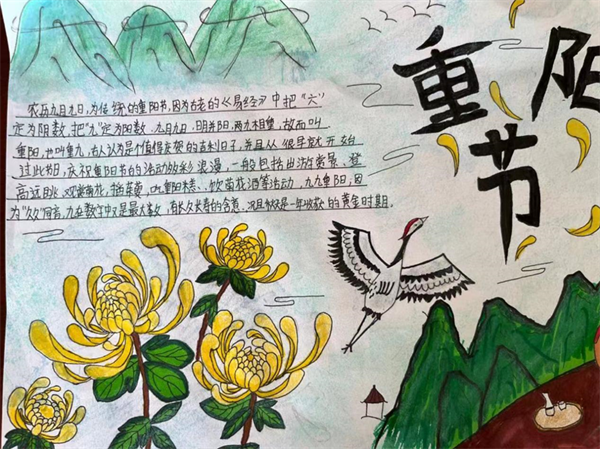 重阳
节
农历九月九日,为传统的重阳节,因为古老的《易经》中把“六”
定为阴数,把“九”定为阳数,九月九日,明并阳,两九相重,故而叫
重阳,也叫重九,古人认为是个值得庆贺的吉利日子,并且从很早就开始
过此节日,庆祝重阳节的活动多彩浪漫,一般包括出游赏景、登
高远眺、观赏菊花、插茱萸、吃重阳糕、饮菊花酒等活动,九九重阳,因
为“久久”同音,九在数字中又是最大数,有长久长寿的含意,况且秋天是一年收获的黄金时期。